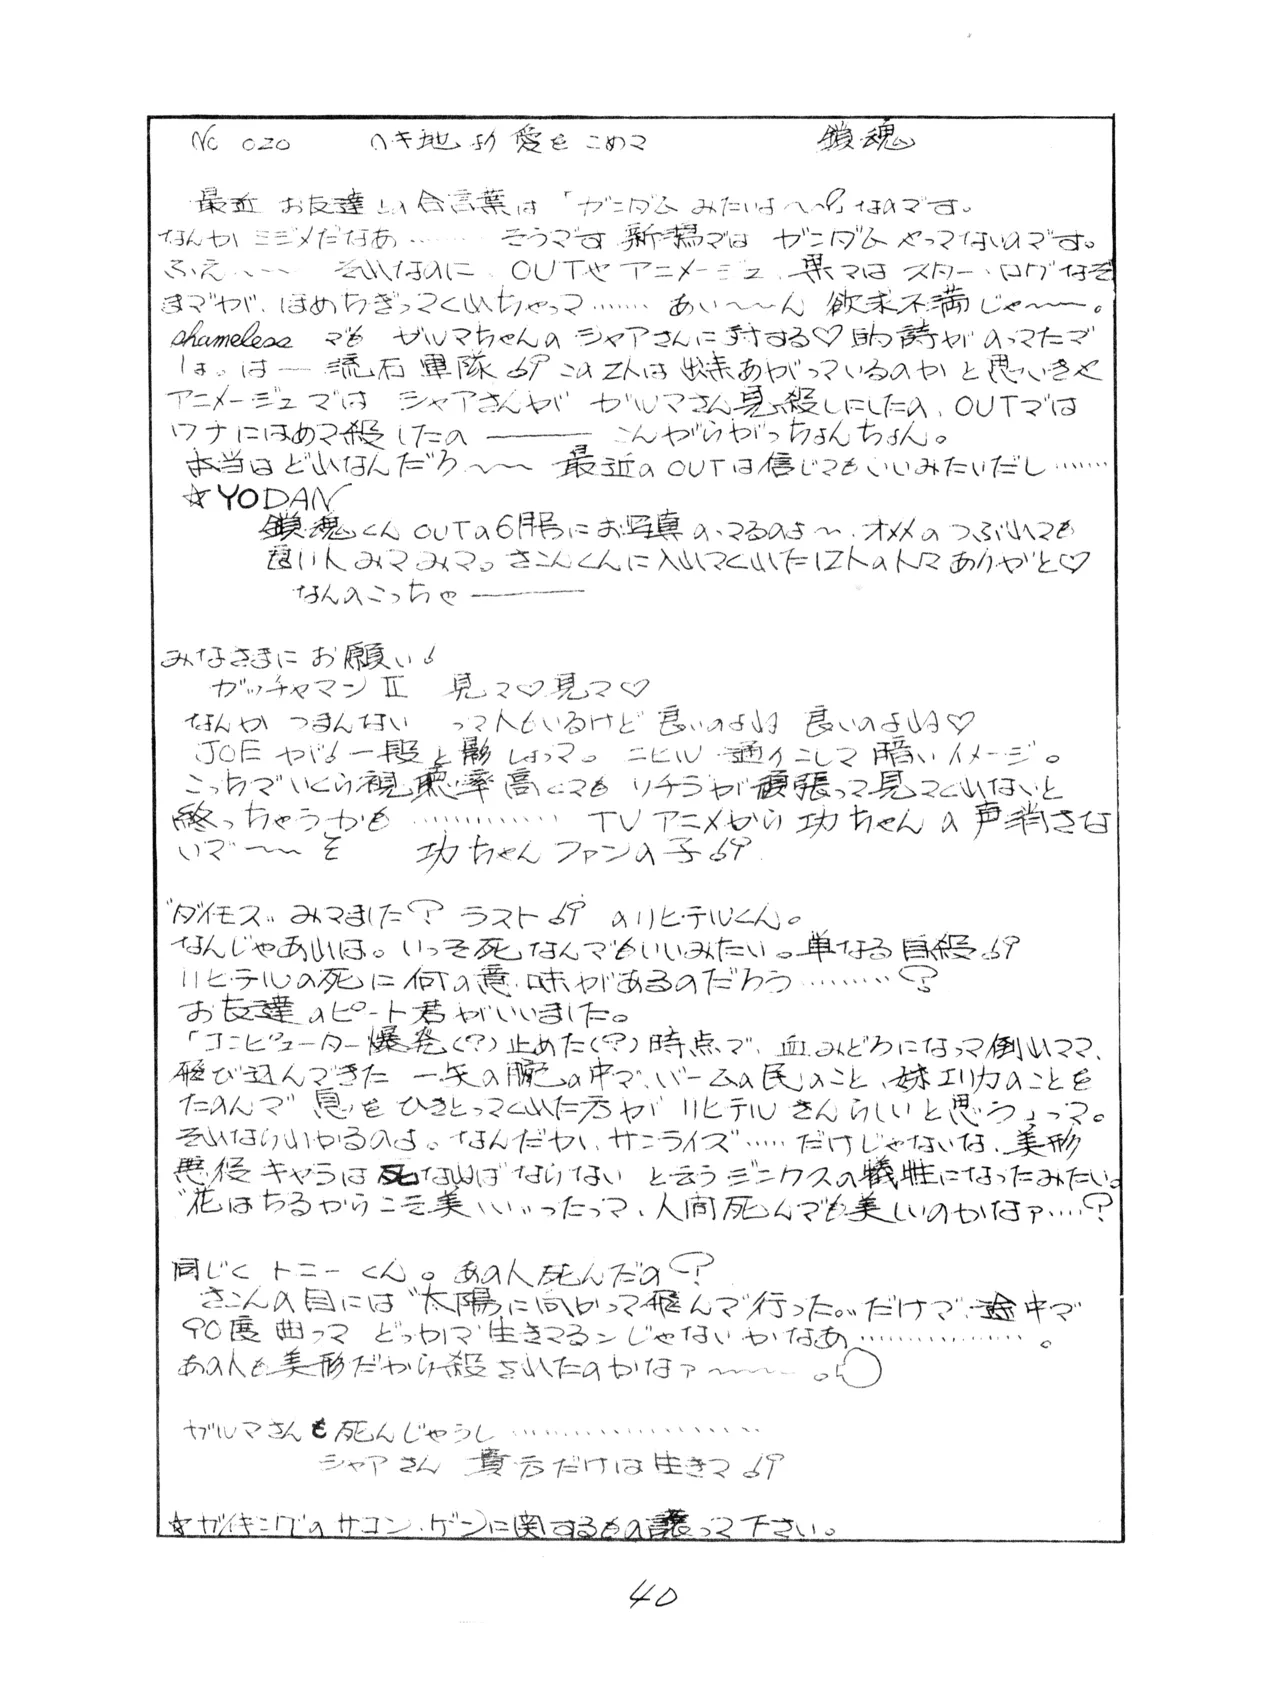 No 020 へき地より愛をこめて 鎖魂
最近 お友達との合言葉は「ガンダム みたいよ〜〜!」なのです。
なんかミジメだなあ…… そうです 新潟では ガンダムやってないのです。
ふえ〜〜〜 それなのに、OUTやアニメージュ、果ては スター・ログなぞ
までが、ほめちぎってくれちゃって…… あい〜〜ん 欲求不満じゃ〜〜。
shameless でも ガルマちゃんの シャアさんに対する♡的詩がのってたで
しょ。はー 流石軍隊!! この2人は 出来あがっているのか と思いきや
アニメージュでは シャアさんが ガルマさん見殺しにしたの、OUTでは
ワナにはめて殺したの ―― こんがらがっちょんちょん。
本当はどれなんだろ〜〜 最近のOUTは信じてもいいみたいだし……
☆YODAN
鎖魂くん OUTの6月号にお写真のってるのよ〜、オメメのつぶれても
良い人みてみて。さこんくんに入れてくれた12人の人々ありがと♡
なんのこっちゃ ――
みなさまに お願い!
ガッチャマンⅡ 見て♡見て♡
なんか つまんない って人もいるけど 良いのよね 良いのよね♡
JOEがもう一段と影しょって。ニヒル 通りこして 暗いイメージ。
こっちでいくら視聴率高くても ソチラが頑張って見てくれないと
終っちゃうかも ………… TVアニメから 功ちゃんの声消さな
いで〜〜 そ 功ちゃんファンの子!!
"ダイモス" みてました? ラスト!! のリヒテルくん。
なんじゃあれは。いっそ死なんでもいいみたい。単なる自殺!!
リヒテルの死に何の意味があるのだろう………?
お友達のピート君がいいました。
「コンピューター爆発(?)止めた(?)時点で、血みどろになって倒れてて、
飛び込んできた 一矢の腕の中で、バームの民のこと、妹エリカのことを
たのんで 息をひきとってくれた方が リヒテルさんらしいと思う」って。
それならわかるのよ。なんだかい、サンライズ…… だけじゃないな、美形
悪役キャラは死なねばならない と云うジンクスの犠牲になったみたい。
"花はちるからこそ美しい"ったって、人間死んでも美しいのかなァ……?
同じくトニーくん。あの人死んだの?
さこんの目には"太陽に向かって飛んで行った。"だけで、途中で
90度曲って どっかで生きてるンじゃないかなあ……………。
あの人も美形だから殺されたのかなァ〜〜〜。
ガルマさんも死んじゃうし ………………
シャアさん 貴方だけは生きて!!
☆ガイキングのサコン・ゲンに関するもの譲って下さい。
40